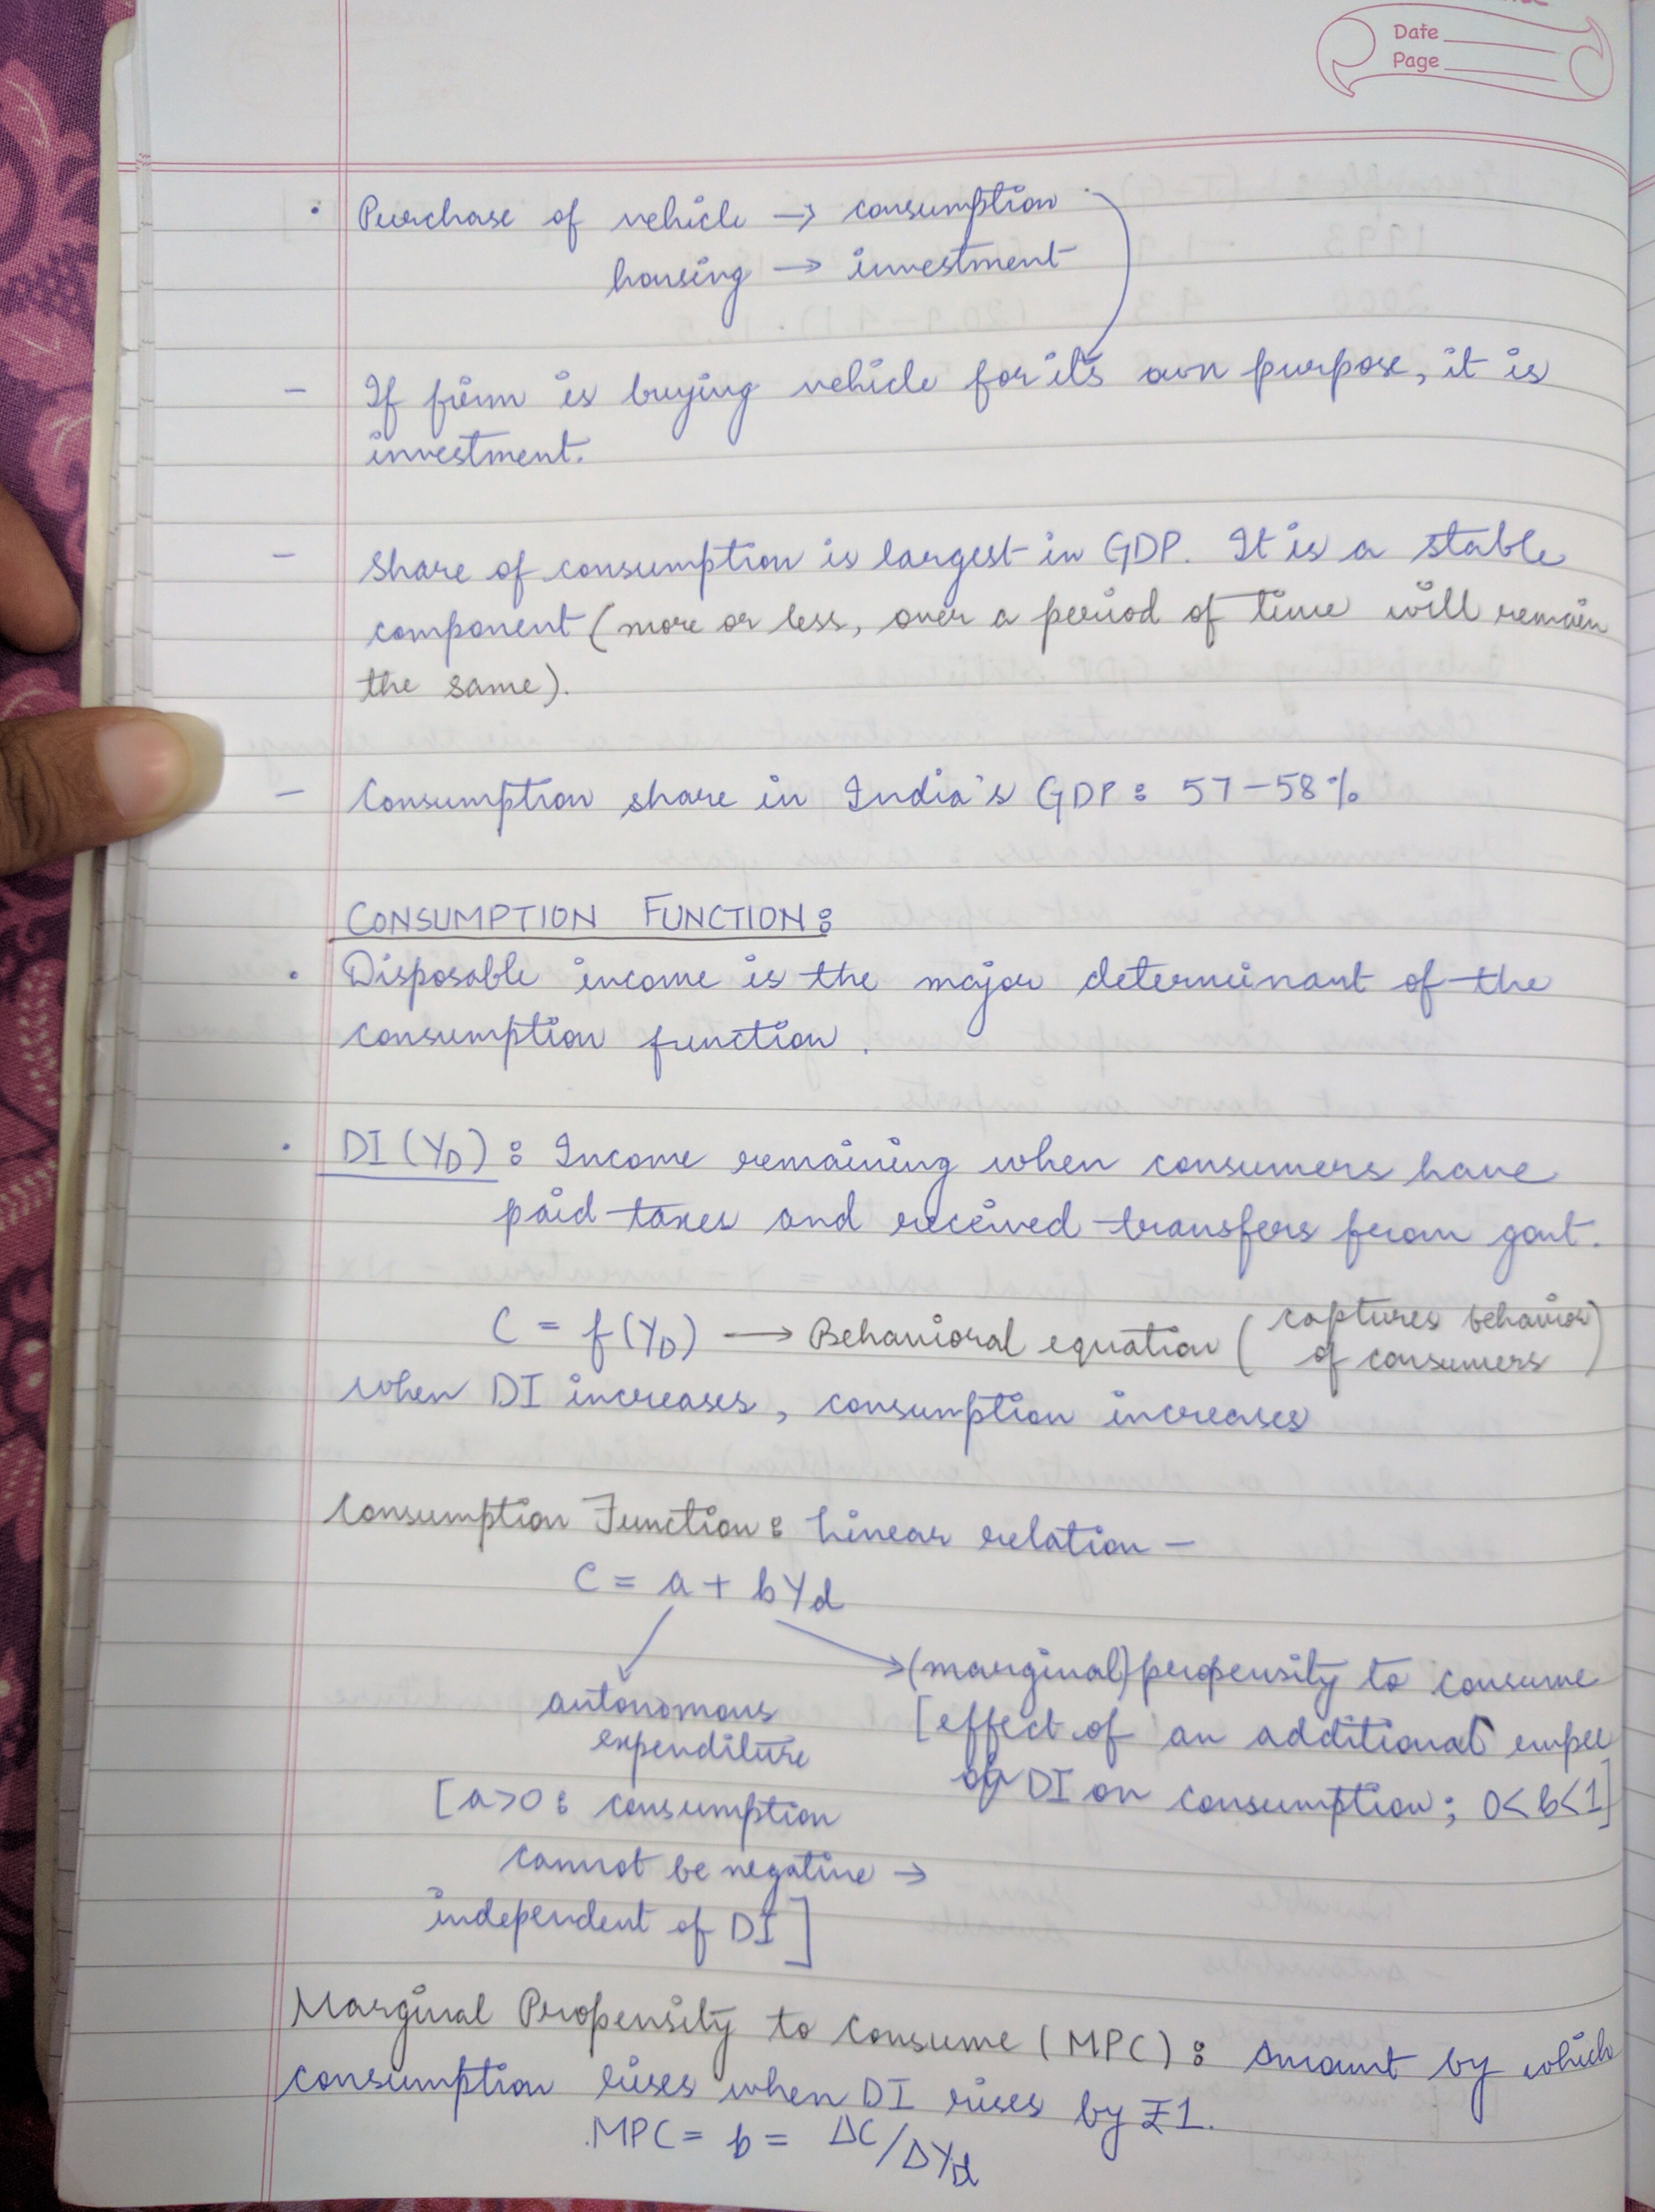 Date
Page
• Purchase of vehicle → consumption
housing → investment
– If firm is buying vehicle for its own purpose, it is
investment.
– Share of consumption is largest in GDP. It is a stable
component (more or less, over a period of time will remain
the same).
– Consumption share in India's GDP : 57–58%
CONSUMPTION FUNCTION :
• Disposable income is the major determinant of the
consumption function.
• DI (YD) : Income remaining when consumers have
paid taxes and received transfers from govt.
C = f(YD) → Behavioral equation ( captures behavior
of consumers )
when DI increases, consumption increases
Consumption Function : Linear relation –
C = a + bYd
→ (marginal) propensity to consume
autonomous
[effect of an additional rupee
expenditure
of DI on consumption; 0<b<1]
[a>0 : consumption
cannot be negative →
independent of DI]
Marginal Propensity to Consume (MPC) : Amount by which
consumption rises when DI rises by ₹1.
MPC = b = ΔC/ΔYd